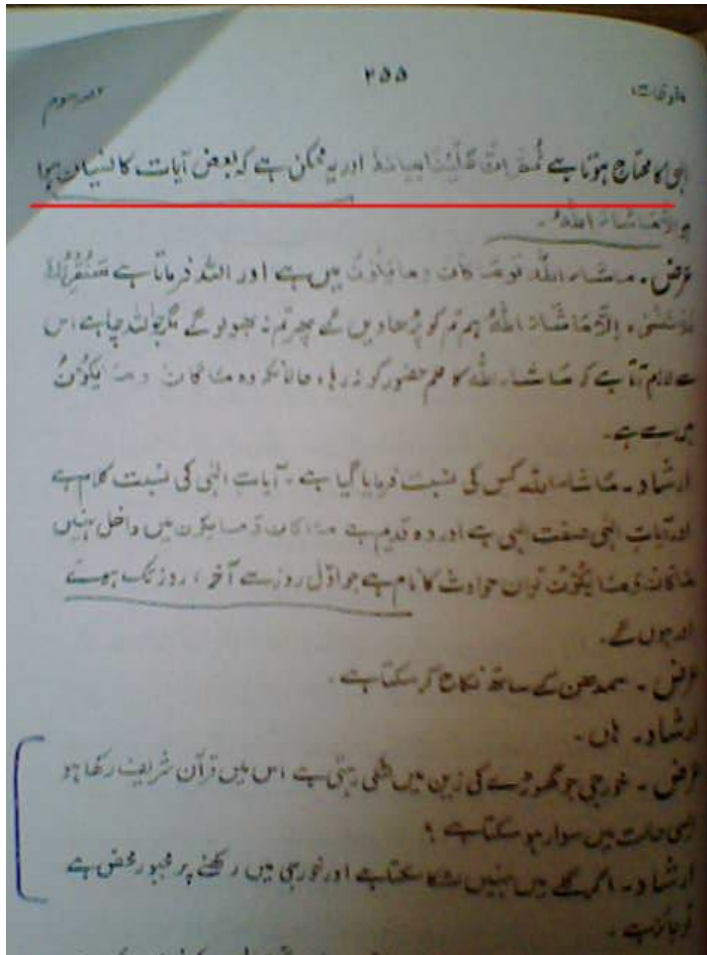 ۲۵۵
ملفوظات
حصہ سوم
الٰہی کا محتاج ہوتا ہے ثُمَّ اِنَّ عَلَیْنَا بیانہٗ اور یہ ممکن ہے کہ بعض آیات کا نسیان ہوا
ہو اِلَّا مَا شَاءَ اللّٰہُ ۔
عرض ۔ ماشاء اللّٰہ تو مَا کَانَ وما یکُوْنُ میں ہے اور اللہ فرماتا ہے سَنُقْرِئُکَ
فَلَا تَنْسٰی ہ اِلَّا مَا شَاءَ اللّٰہُ ہم تم کو پڑھادیں گے پھر تم نہ بھولو گے مگر جو اللہ چاہے اس
سے لازم آتا ہے کہ مَا شاء اللّٰہ کا علم حضور کو نہ رہا ، حالانکہ وہ مَا کان و مَا یکُوْنُ
میں سے ہے ۔
ارشاد ۔ مَا شاء اللّٰہ کس کی نسبت فرمایا گیا ہے ۔ آیات الٰہی کی نسبت کلام ہے
اور آیات الٰہی صفت الٰہی ہے اور وہ قدیم ہے مَا کان وَمَا یکون میں داخل نہیں
مَا کَانَ وَمَا یکُوْنُ تو ان حوادث کا نام ہے جو اوّل روز سے آخر ، روز تک ہوئے
اور ہوں گے ۔
عرض ۔ سمدھن کے ساتھ نکاح کر سکتا ہے ۔
ارشاد ۔ ہاں ۔
عرض ۔ خورجی جو گھوڑے کی زین میں لٹکی رہتی ہے اس میں قرآن شریف رکھا ہو
ایسی حالت میں سوار ہو سکتا ہے ؟
ارشاد ۔ اگر گلے میں نہیں لٹکا سکتا ہے اور خورجی میں رکھنے پر مجبور محض ہے
تو جائز ہے ۔